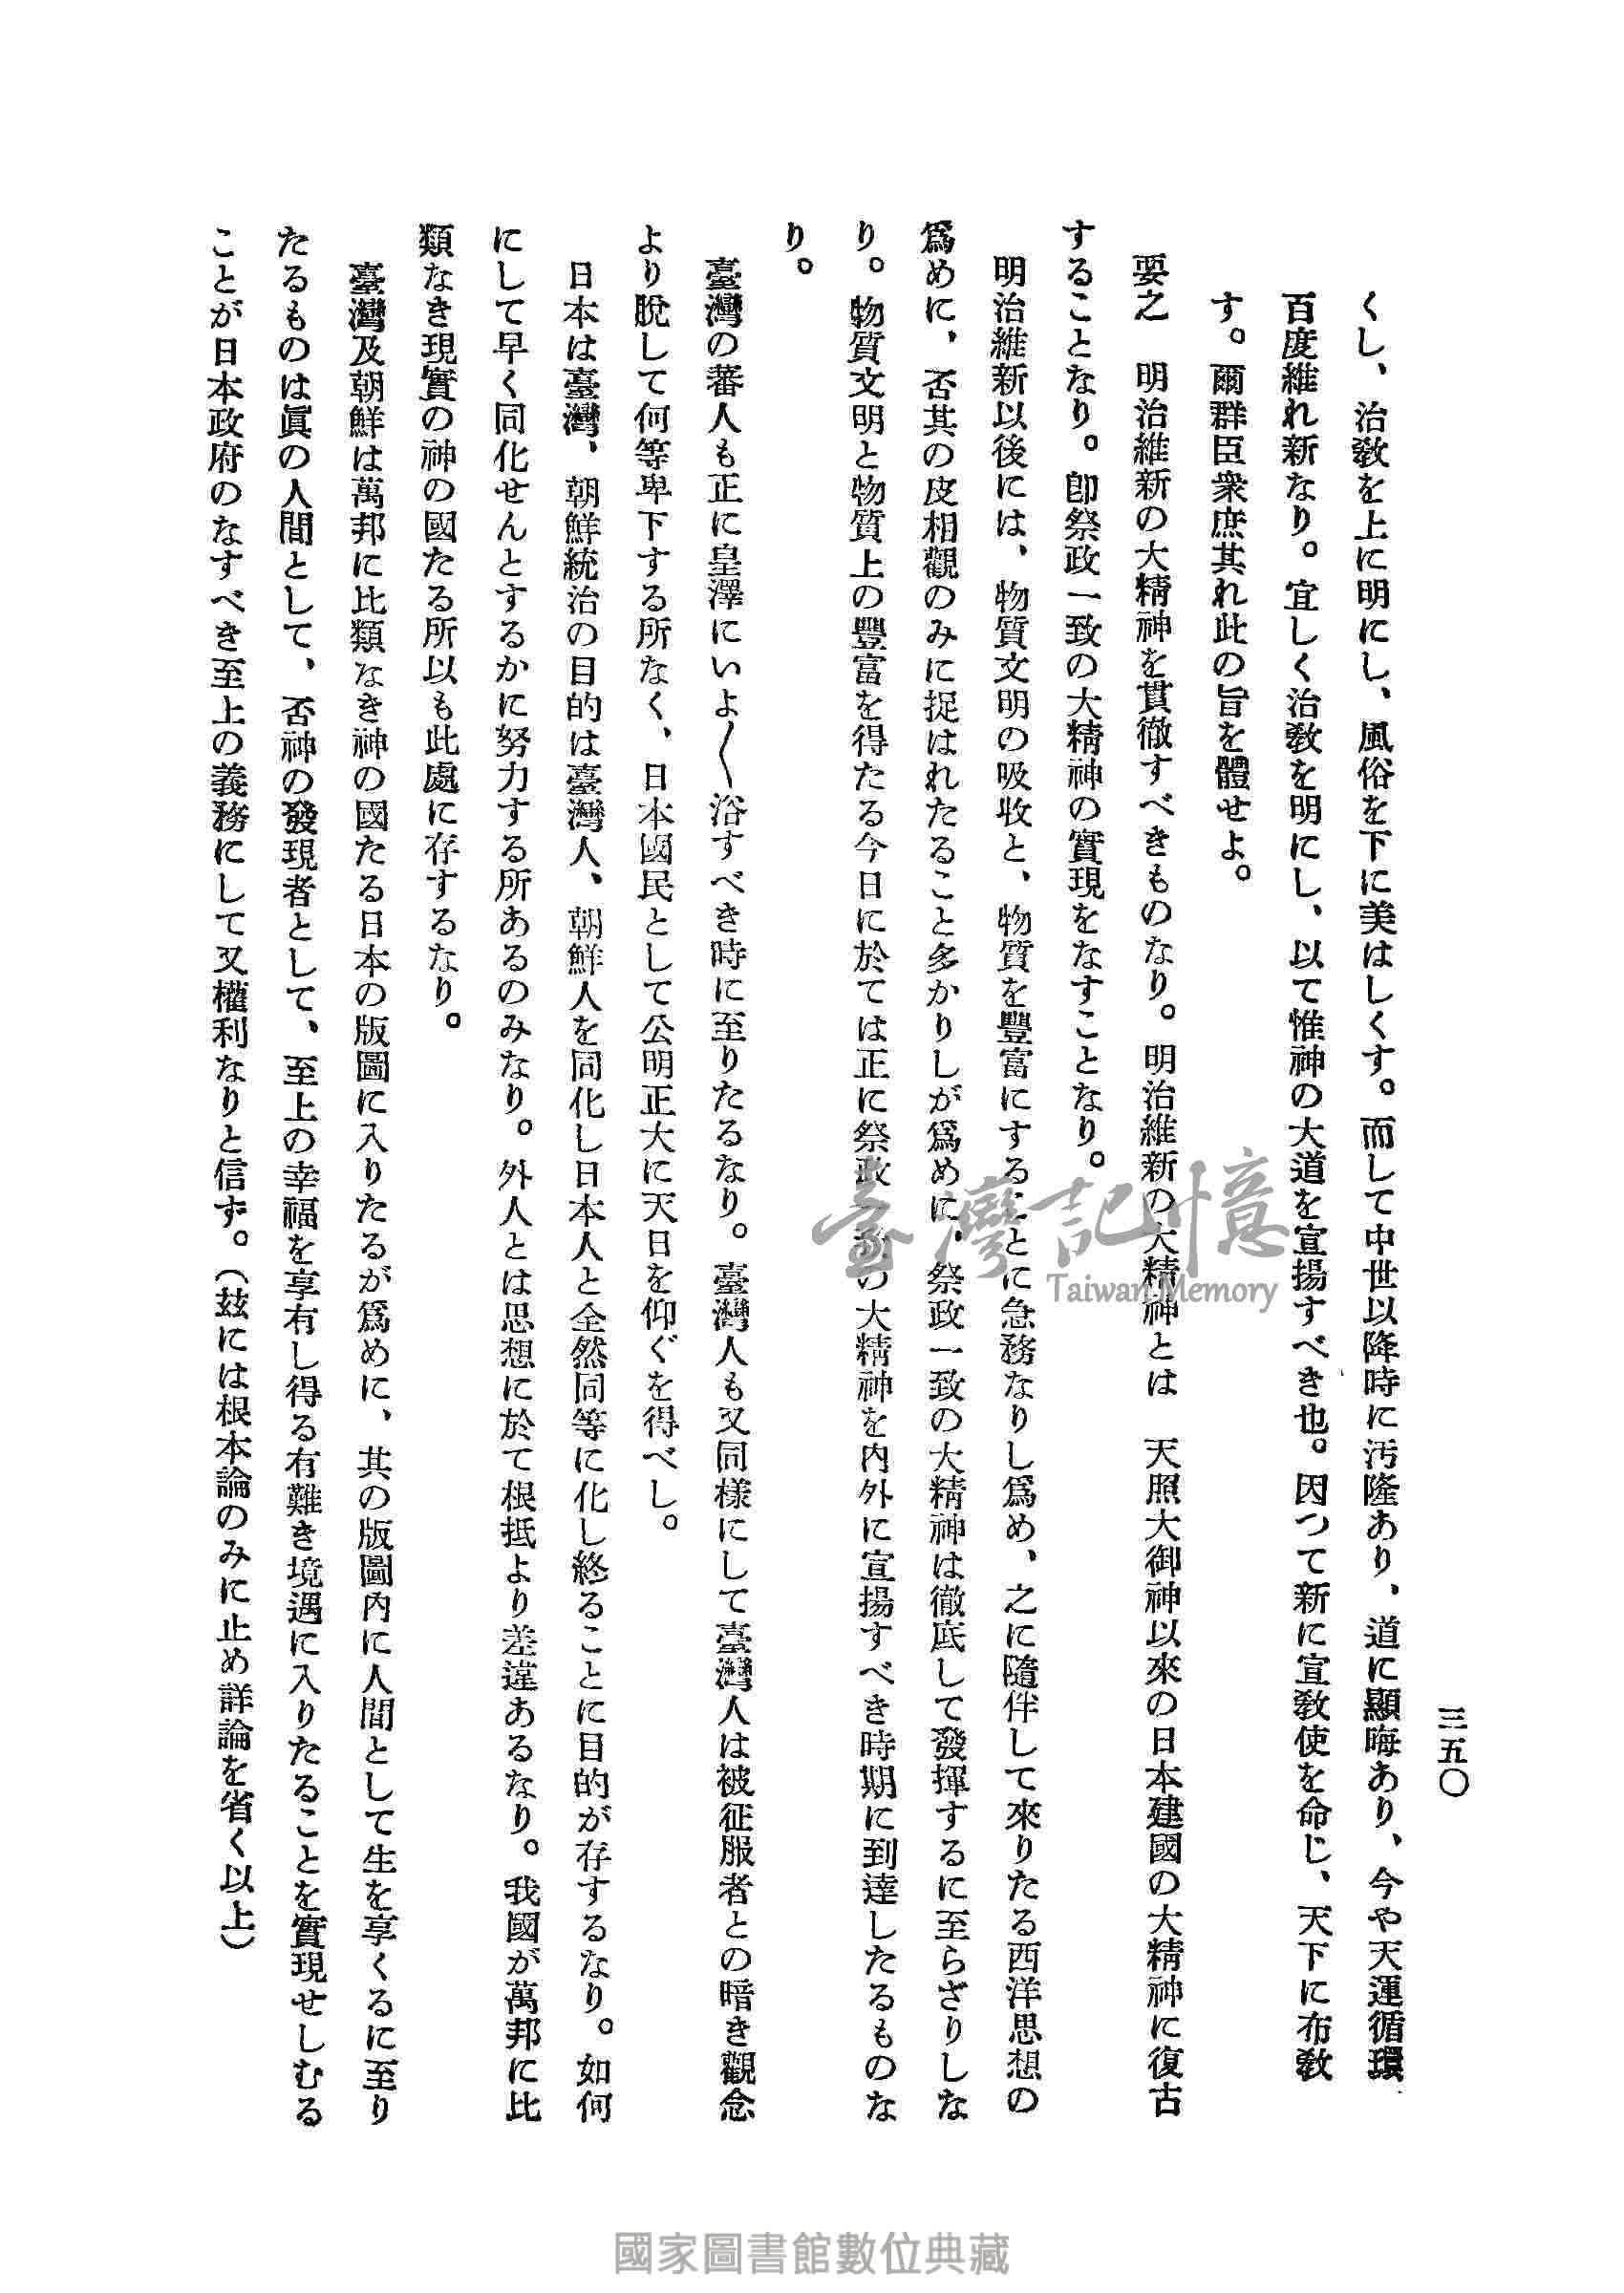 三五〇
くし、治敎を上に明にし、風俗を下に美はしくす。而して中世以降時に汚隆あり、道に顯晦あり、今や天運循環
百度維れ新なり。宜しく治敎を明にし、以て惟神の大道を宣揚すべき也。因つて新に宣敎使を命じ、天下に布敎
す。爾群臣衆庶其れ此の旨を體せよ。
要之 明治維新の大精神を貫徹すべきものなり。明治維新の大精神とは 天照大御神以來の日本建國の大精神に復古
することなり。卽祭政一致の大精神の實現をなすことなり。
明治維新以後には、物質文明の吸收と、物質を豐富にすることに急務なりし爲め、之に隨伴して來りたる西洋思想の
爲めに、否其の皮相觀のみに捉はれたること多かりしが爲めに、祭政一致の大精神は徹底して發揮するに至らざりしな
り。物質文明と物質上の豐富を得たる今日に於ては正に祭政一致の大精神を内外に宣揚すべき時期に到達したるものな
り。
臺灣の蕃人も正に皇澤にいよ〱浴すべき時に至りたるなり。臺灣人も又同樣にして臺灣人は被征服者との暗き觀念
より脫して何等卑下する所なく、日本國民として公明正大に天日を仰ぐを得べし。
日本は臺灣、朝鮮統治の目的は臺灣人、朝鮮人を同化し日本人と全然同等に化し終ることに目的が存するなり。如何
にして早く同化せんとするかに努力する所あるのみなり。外人とは思想に於て根抵より差違あるなり。我國が萬邦に比
類なき現實の神の國たる所以も此處に存するなり。
臺灣及朝鮮は萬邦に比類なき神の國たる日本の版圖に入りたるが爲めに、其の版圖内に人間として生を享くるに至り
たるものは眞の人間として、否神の發現者として、至上の幸福を享有し得る有難き境遇に入りたることを實現せしむる
ことが日本政府のなすべき至上の義務にして又權利なりと信ず。（玆には根本論のみに止め詳論を省く以上）
臺灣記憶
Taiwan Memory
國家圖書館數位典藏